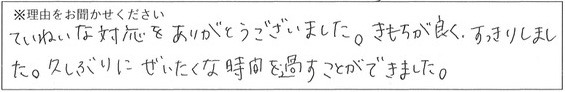 ※理由をお聞かせください
ていねいな対応をありがとうございました。きもちが良く、すっきりしまし
た。久しぶりにぜいたくな時間を過すことができました。